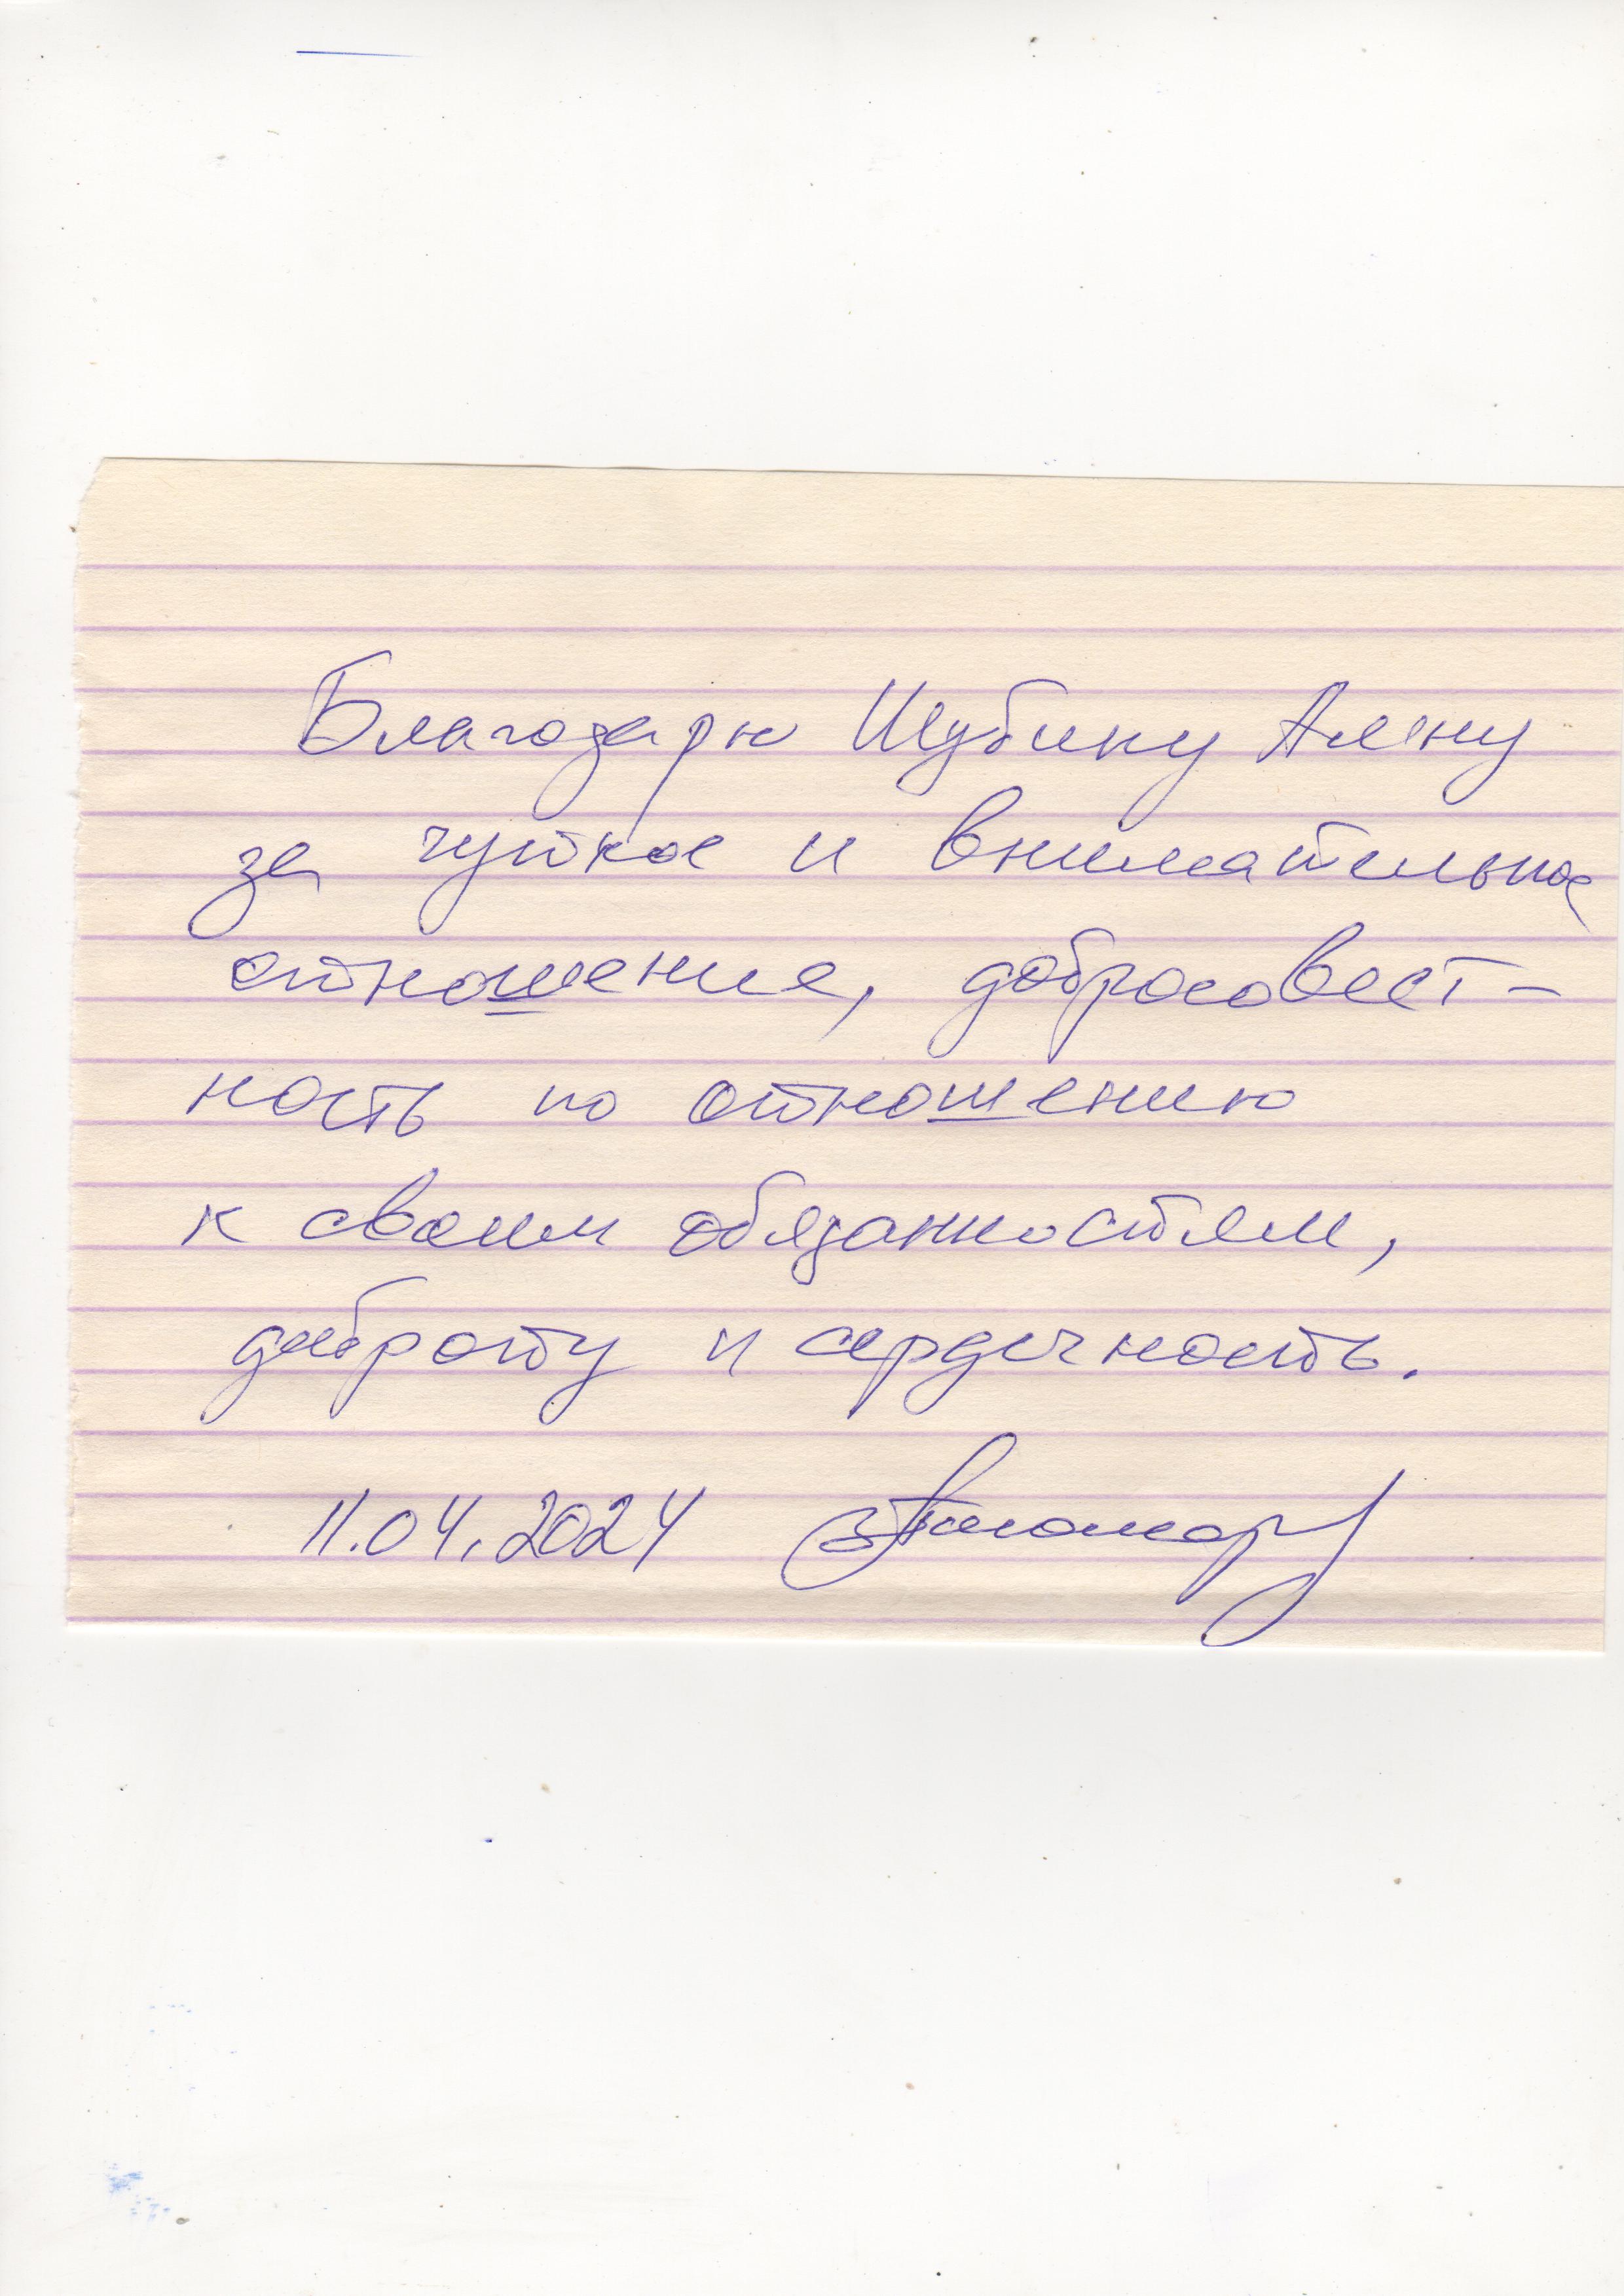 Благодарю Шубину Алену
за чуткое и внимательное
отношение, добросовест-
ность по отношению
к своим обязанностям,
доброту и сердечность.
11.04.2024